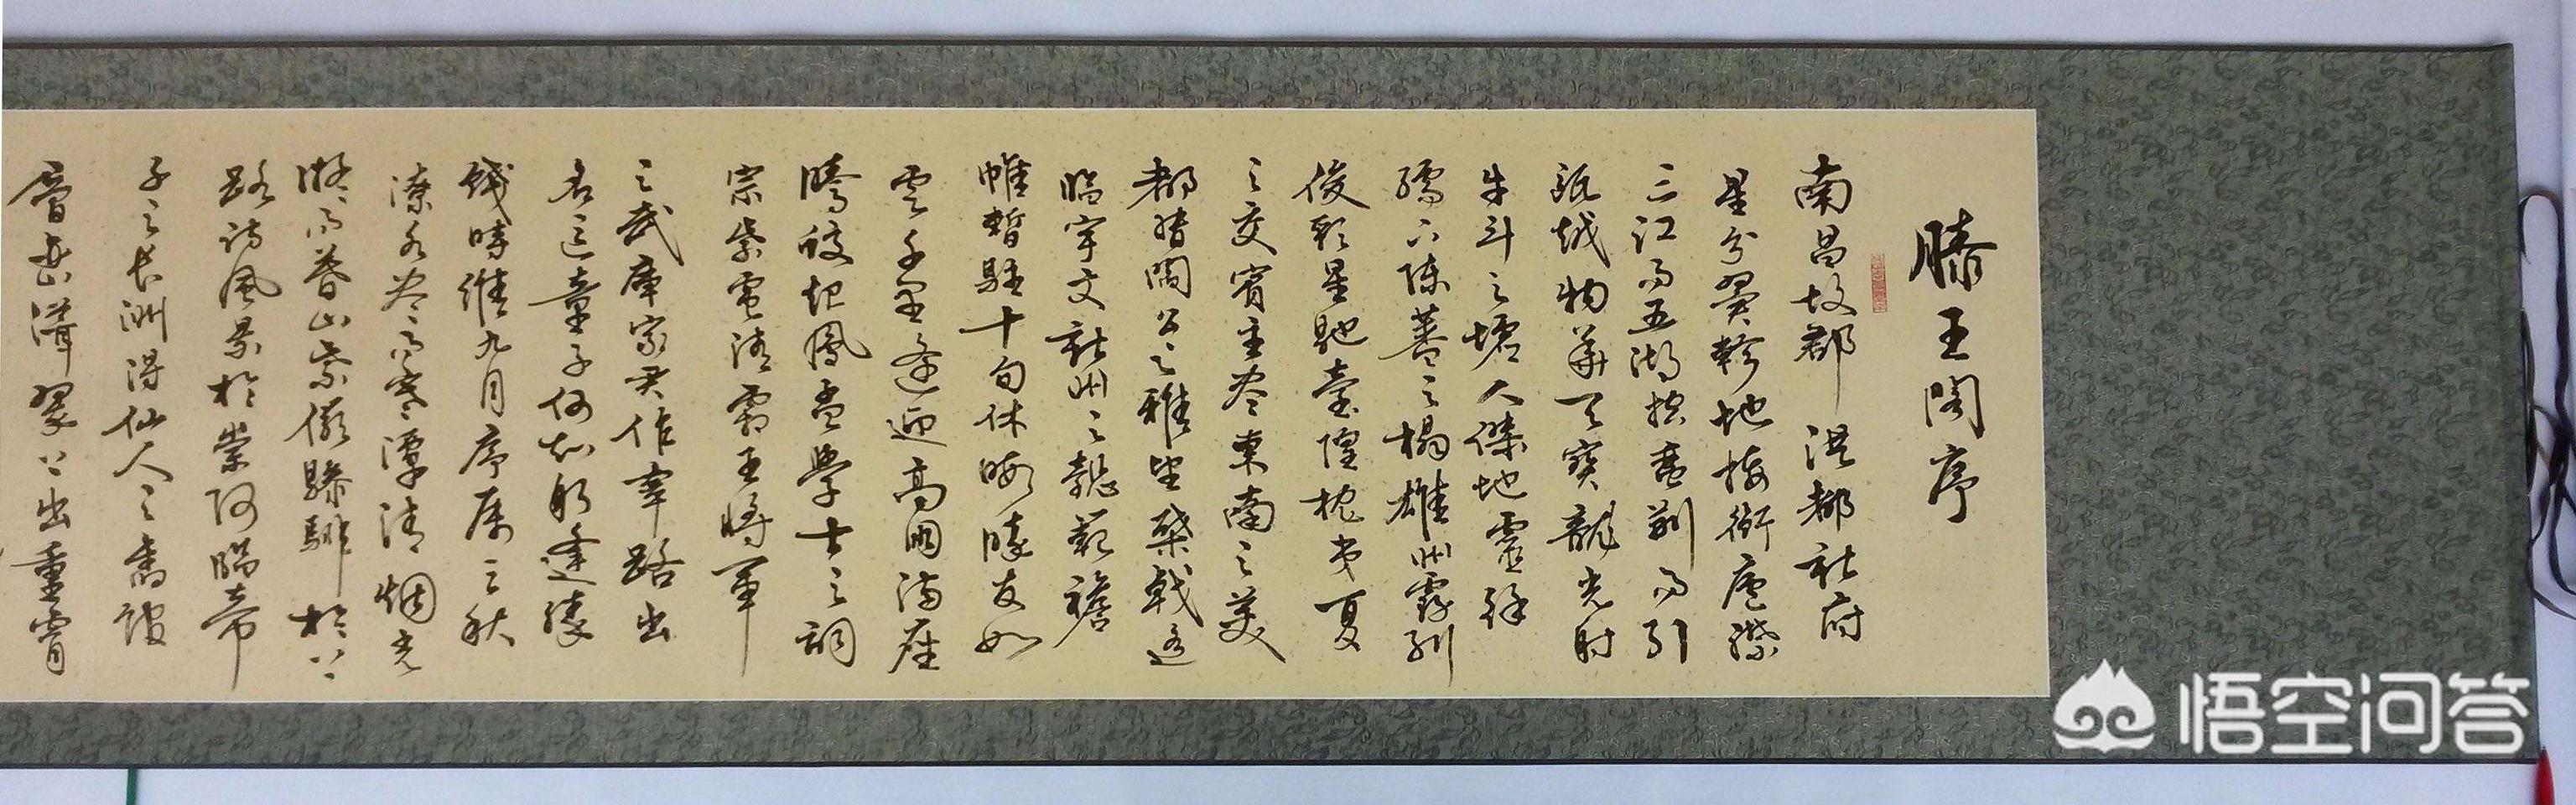 滕王阁序
南昌故郡洪都新府
星分翼軫地接衡廬襟
三江而五湖控蠻荆而引
甌越物華天寶龍光射
牛斗之墟人傑地靈徐
孺下陳蕃之榻雄州霧列
俊彩星馳臺隍枕夷夏
之交賓主尽東南之美
都督閻公之雅望棨戟遥
臨宇文新州之懿範襜
帷暫駐十旬休暇勝友如
雲千里逢迎高朋滿座
騰蛟起鳳孟學士之詞
宗紫電清霜王將軍
之武庫家君作宰路出
名區童子何知躬逢勝
餞時維九月序屬三秋
潦水尽而寒潭清烟光
凝而暮山紫儼驂騑於上
路訪風景於崇阿臨帝
子之長洲得仙人之舊館
層巒聳翠上出重霄
悟空问答